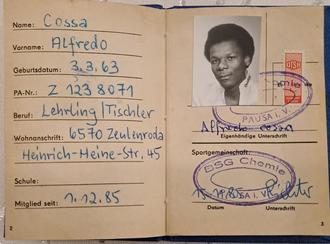 Name: Cossa
Vorname: Alfredo
Geburtsdatum: 3.3.63
PA-Nr.: Z 1238071
Beruf: Lehrling/Tischler
Wohnanschrift: 6570 Zeulenroda
Heinrich-Heine-Str. 45
Schule:
Mitglied seit: 1.12.85
2
DTSB
PAUSA i. V.
Alfredo Cossa
Eigenhändige Unterschrift
Sportgemeinschaft:
BSG Chemie
PAUSA i. V.
Datum Unterschrift
3